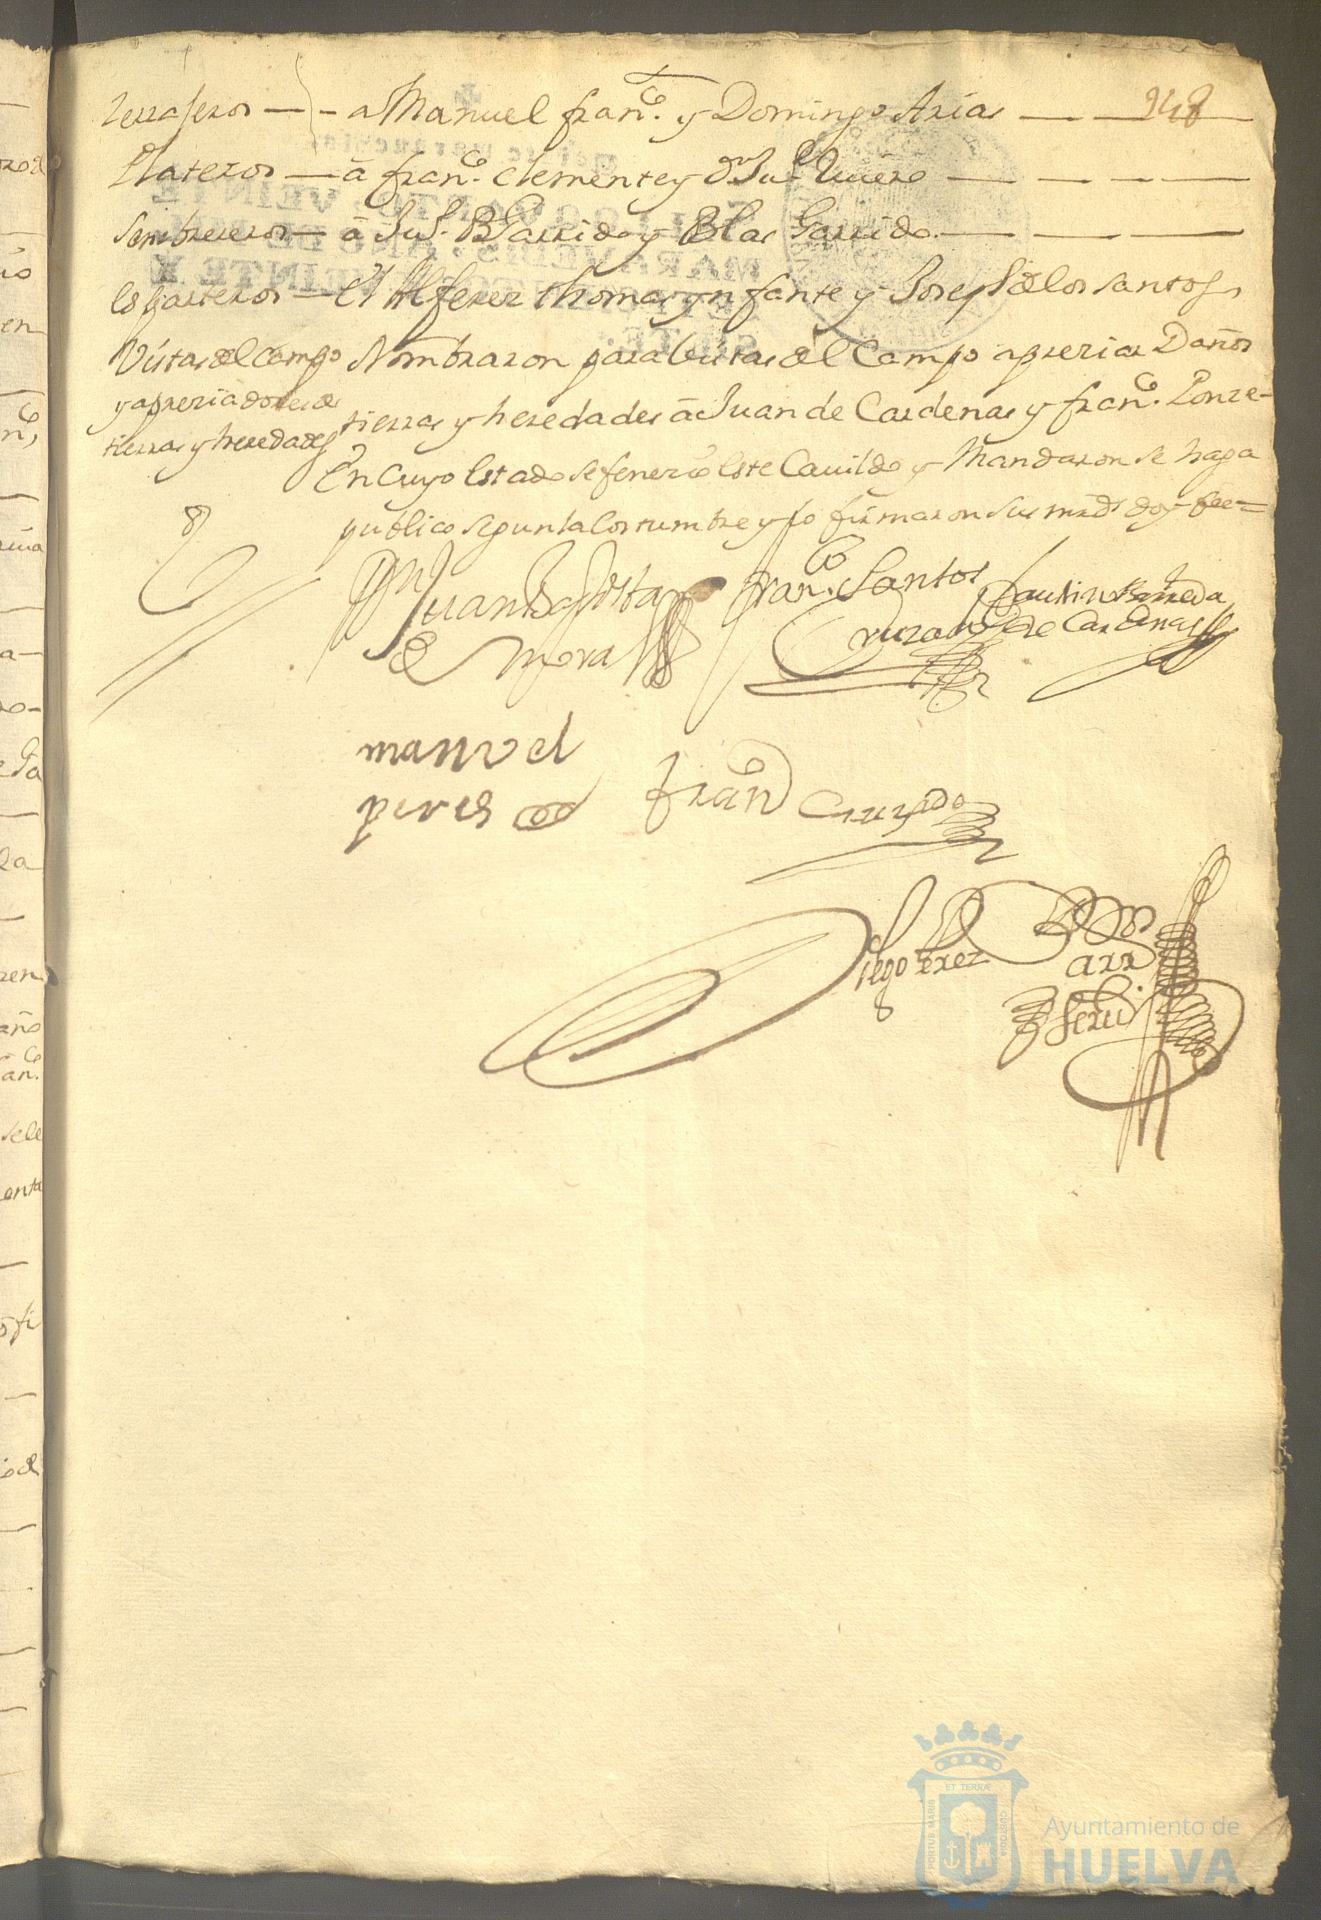 248
zerrajeros — — a Manuel franco. y Domingo Arias — — —
Plateros — â franco. clemente y Dn Juo. — — — —
sombrereros — â Garrido y Blas Garrido — — —
esparteros — el Alferez thomas ynfante y Joseph de los santos
Vistas del Campo
y apreciadores de
tierras y heredades
Nombraron para Vistas del Campo apreciar Daños
tierras y heredades â Juan de Cardenas y franco. Ponze
En Cuyo Estado se fenecio este Cauildo y Mandaron se haga
publico segun la Costumbre y lo firmaron sus mrds doy fee =
Dn Juan Bauptista
de Mora
franco. Santos
Cruzado
de Cardenas
manuel
peres
franco
Cruzado
Diego Perez
essno
Ayuntamiento de
HUELVA
PORTUS MARIS
ET TERRÆ
CUSTODIA